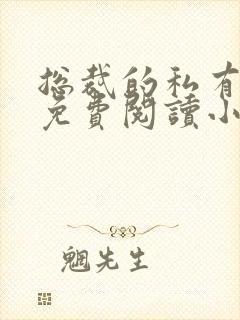 總裁的私有
免費閱讀小
先生